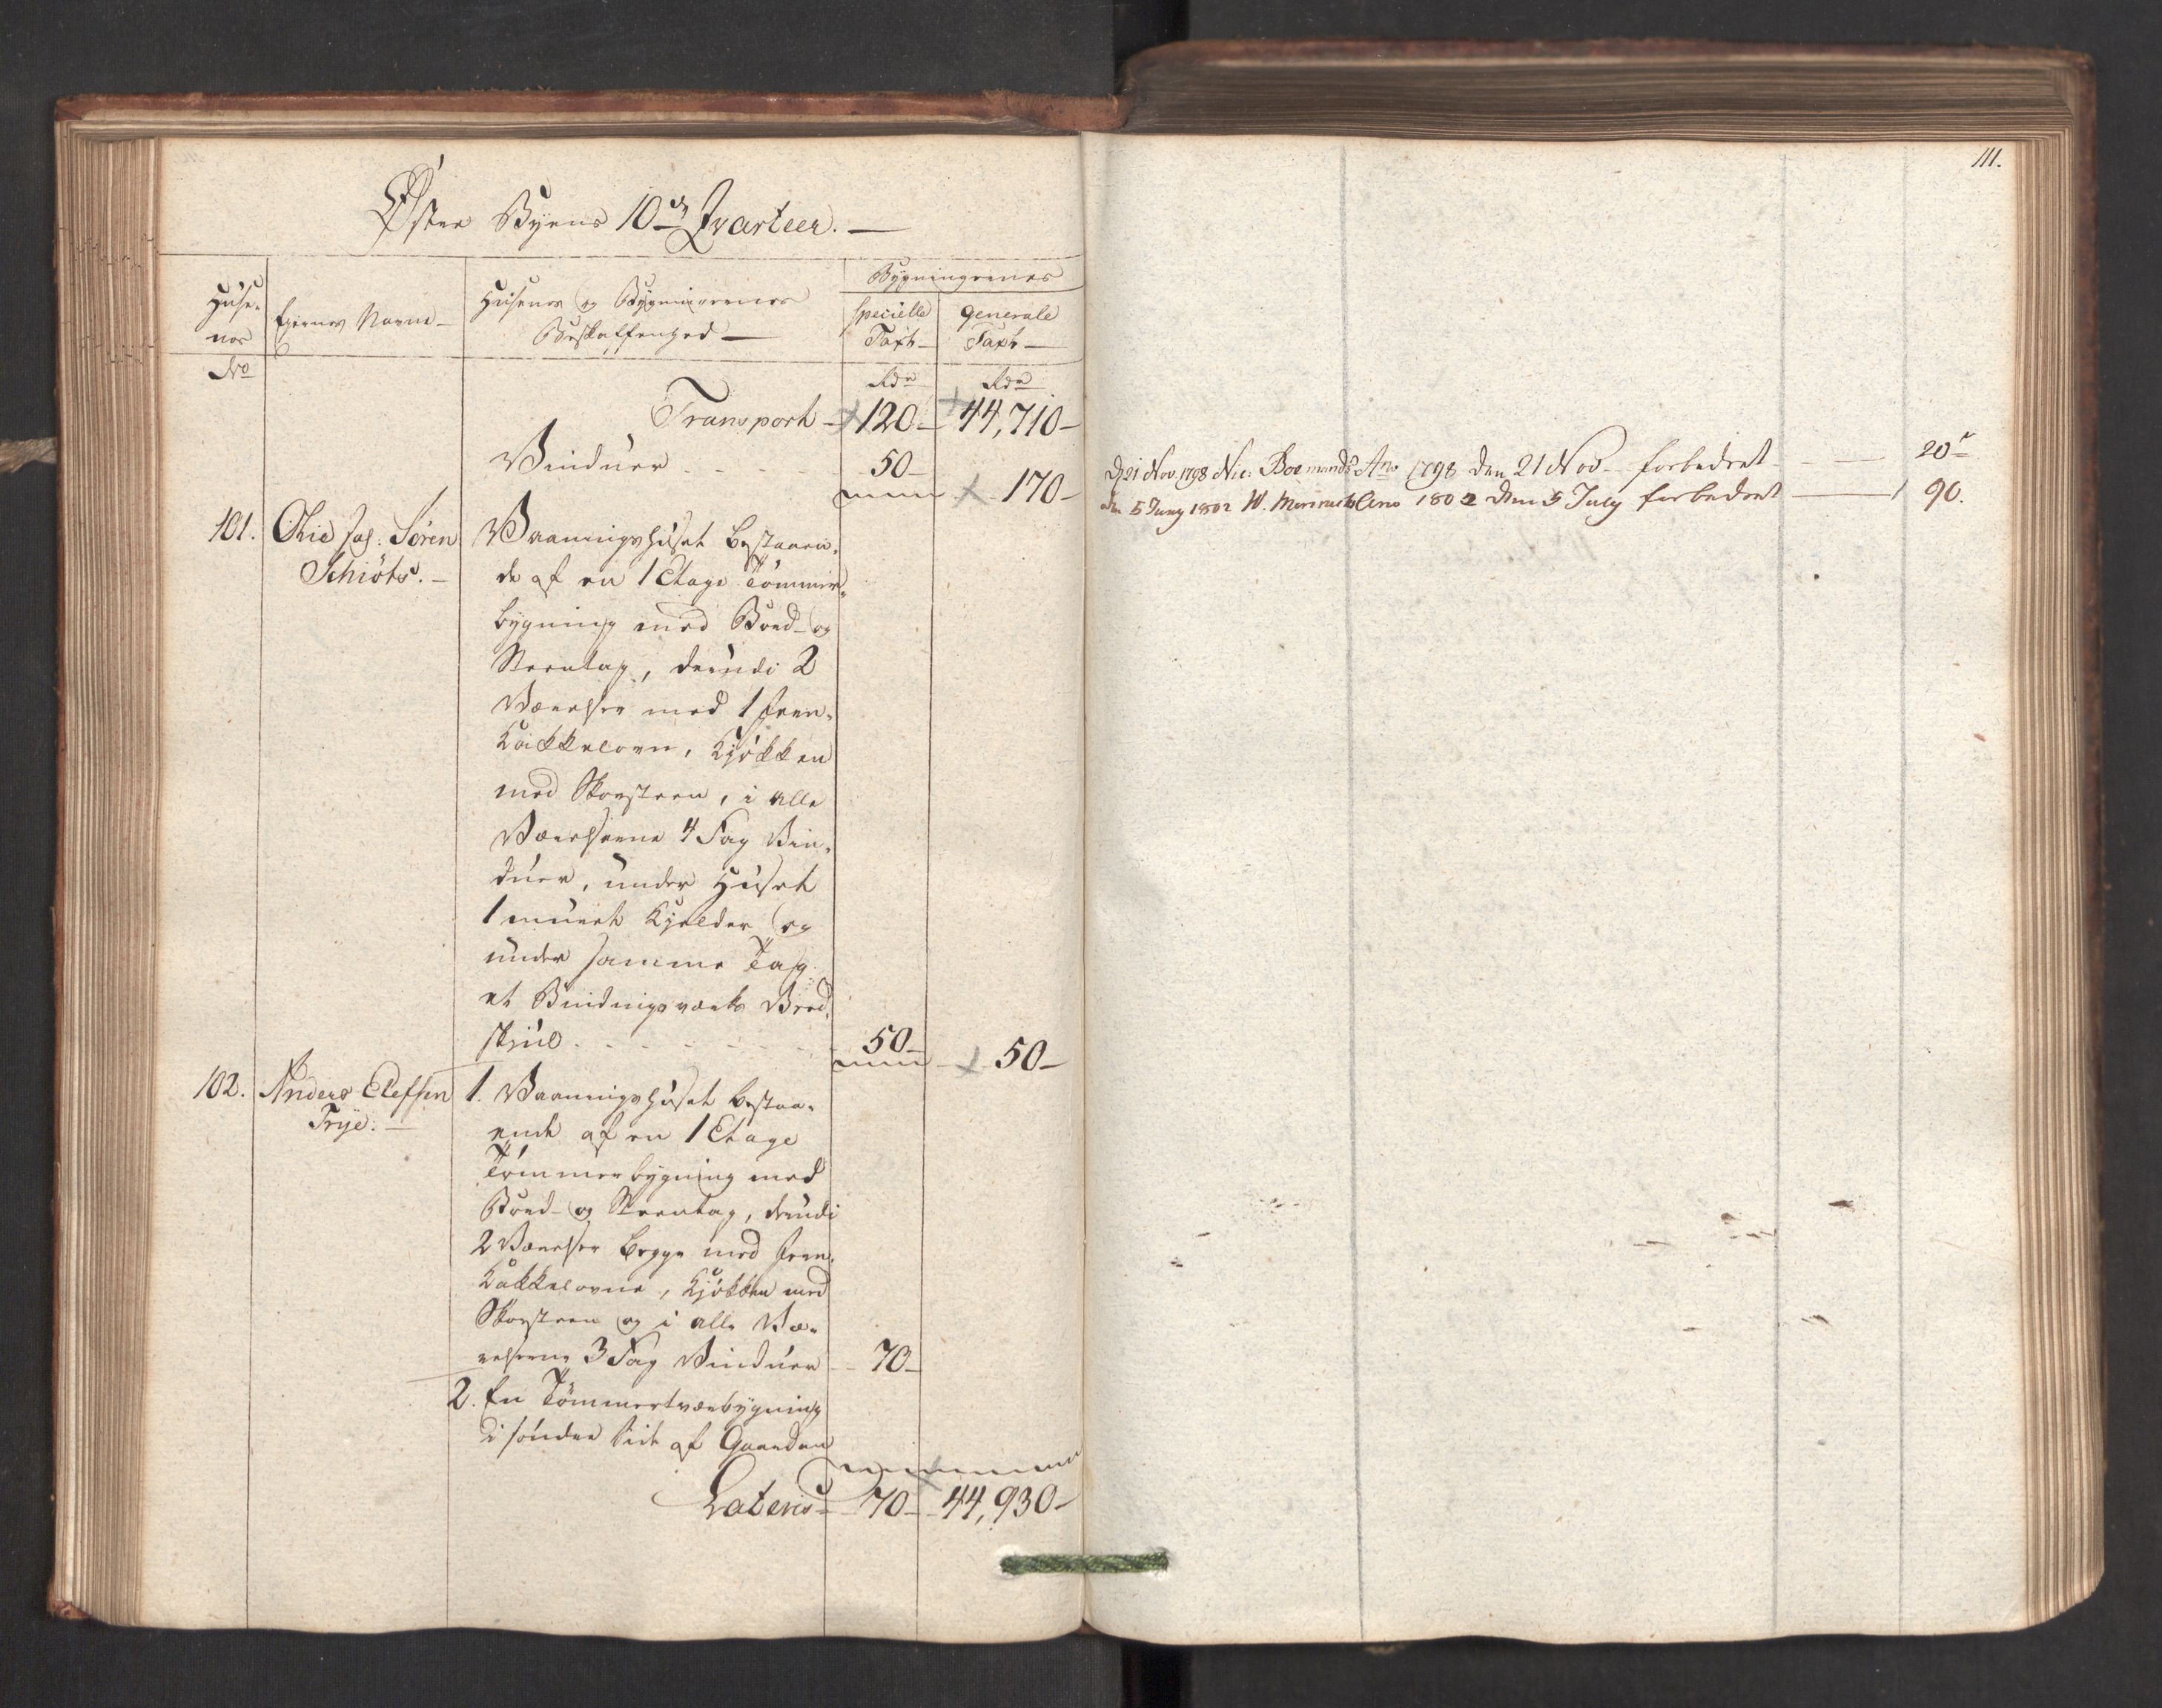 Øster Byens 10de Qvarteer. —
Huse-
nes
No
Eiernes Navne —
Husenes og Bygningernes
Beskaffenhed —
Bygningernes
specielle
Taxt —
generale
Taxt —
Rdr Rdr
Transport — 120 — 44,710 —
Vinduer . . . 50 — 170 —
101. Ole Søren
Schiöts. —
Vaaningshuset bestaaen-
de af en 1 Etage Tømmer-
bygning med Bord- og
Steentag, derudi 2
Værelser med 1 Jern-
Kakkelovn, Kjøkken
med Skorsteen, i alle
Værelserne 4 Fag Vin-
duer, under Huset
1 muurt Kjelder og
under samme Tag
et Bindingsværks Bred-
skuul . . . 50 — 50 —
102. Anders Elefsen
Trye. —
1. Vaaningshuset bestaa-
ende af en 1 Etage
Tømmerbygning med
Bord- og Steentag, derudi
2 Værelser begge med Jern-
Kakkelovne, Kjøkken med
Skorsteen og i alle Væ-
relserne 3 Fag Vinduer — 70 —
2. En Tømmertværbygning
i søndre Side af Gaarden
Lateris — 70 — 44,930 —
111.
D. 21 Nov. 1798 Nic: Ano 1798 den 21 Nov — forbedret — 20r
den 5 July 1802 W. Ano 1802 den 5 July forbedret — 90.